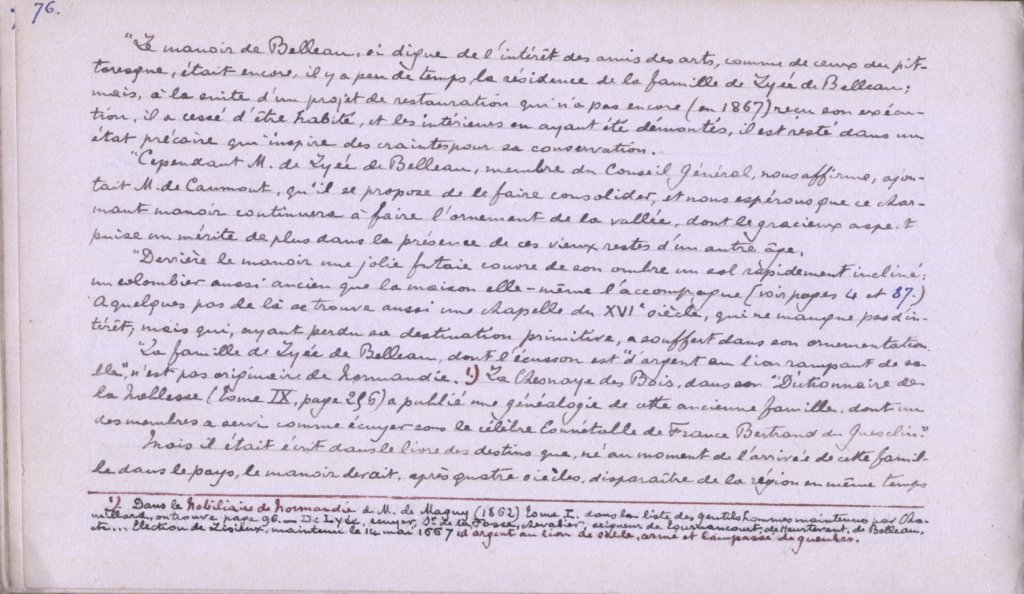 76.
"Le manoir de Belleau, si digne de l'intérêt des amis des arts, comme de ceux du pit-
toresque, était encore, il y a peu de temps, la résidence de la famille de Lyée de Belleau;
mais, à la suite d'un projet de restauration qui n'a pas encore (en 1867) reçu son exécu-
tion, il a cessé d'être habité, et les intérieurs en ayant été démontés, il est resté dans un
état précaire qui inspire des craintes pour sa conservation.
"Cependant M. de Lyée de Belleau, membre du Conseil Général, nous affirme, ajou-
tait M. de Caumont, qu'il se propose de le faire consolider, et nous espérons que ce char-
mant manoir continuera à faire l'ornement de la vallée, dont le gracieux aspect
puise un mérite de plus dans la présence de ces vieux restes d'un autre âge.
"Derrière le manoir une jolie futaie couvre de son ombre un sol rapidement incliné;
un colombier aussi ancien que la maison elle-même l'accompagne (voir pages 4 et 87.)
A quelques pas de là se trouve aussi une chapelle du XVIe siècle, qui ne manque pas d'in-
térêt; mais qui, ayant perdu sa destination primitive, a souffert dans son ornementation.
"La famille de Lyée de Belleau, dont l'écusson est "d'argent au lion rampant de sa-
ble", n'est pas originaire de Normandie. 1) La Chesnaye des Bois, dans son "Dictionnaire de
la Noblesse (Tome IX, page 256) a publié une généalogie de cette ancienne famille, dont un
des membres a servi comme écuyer sous le célèbre Connétable de France Bertrand du Guesclin."
Mais il était écrit dans le livre des destins que, né au moment de l'arrivée de cette famil-
le dans le pays, le manoir devait, après quatre siècles, disparaître de la région en même temps
1) Dans le Nobiliaire de Normandie de M. de Magny (1862) Tome I, dans la liste des gentilshommes maintenus par Cha-
millard, on trouve page 96. — De Lyée, écuyer, Sr de la Fosse, chevalier, seigneur de Tournancourt, de Heurtevent, de Belleau,
etc... Election de Lisieux, maintenu le 14 mai 1667 d'argent au lion de sable, armé et lampassé de gueules.